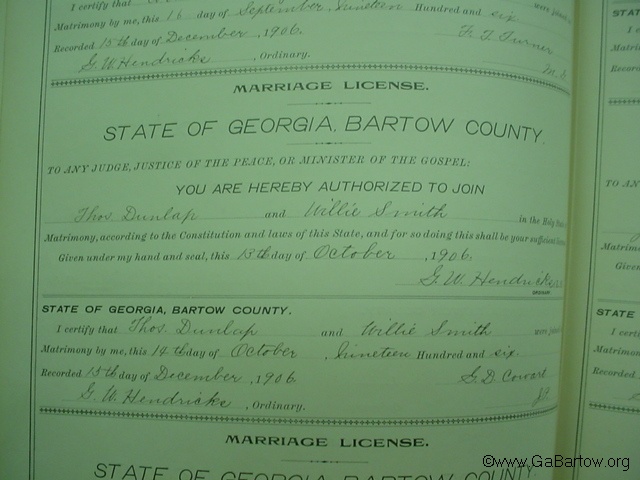 I certify that
Matrimony by me, this 16 day of September, nineteen Hundred and six were joined
Recorded 15th day of December, 1906. F. T. Turner
G. W. Hendricks, Ordinary. M. G.
MARRIAGE LICENSE.
STATE OF GEORGIA, BARTOW COUNTY.
TO ANY JUDGE, JUSTICE OF THE PEACE, OR MINISTER OF THE GOSPEL:
YOU ARE HEREBY AUTHORIZED TO JOIN
Thos. Dunlap and Willie Smith in the Holy
Matrimony, according to the Constitution and laws of this State, and for so doing this shall be your sufficient
Given under my hand and seal, this 13th day of October, 1906.
G. W. Hendricks
STATE OF GEORGIA, BARTOW COUNTY.
I certify that Thos. Dunlap and Willie Smith were joined
Matrimony by me, this 14th day of October, nineteen Hundred and six
Recorded 15th day of December, 1906 G. D. Cowart
G. W. Hendricks, Ordinary. JP
MARRIAGE LICENSE.
STATE OF GEORGIA, BARTOW COUNTY.
STATE
I c
Matrimony
Recorded
TO ANY
Matrimo
Given
STATE
I ce
Matrimony
Recorded
©www.GaBartow.org